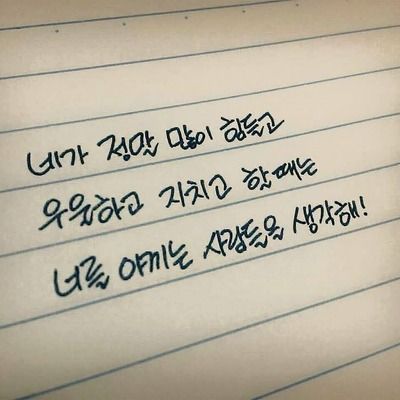 네가 정말 많이 힘들고
우울하고 지치고 할때는
너를 아끼는 사람들을 생각해!